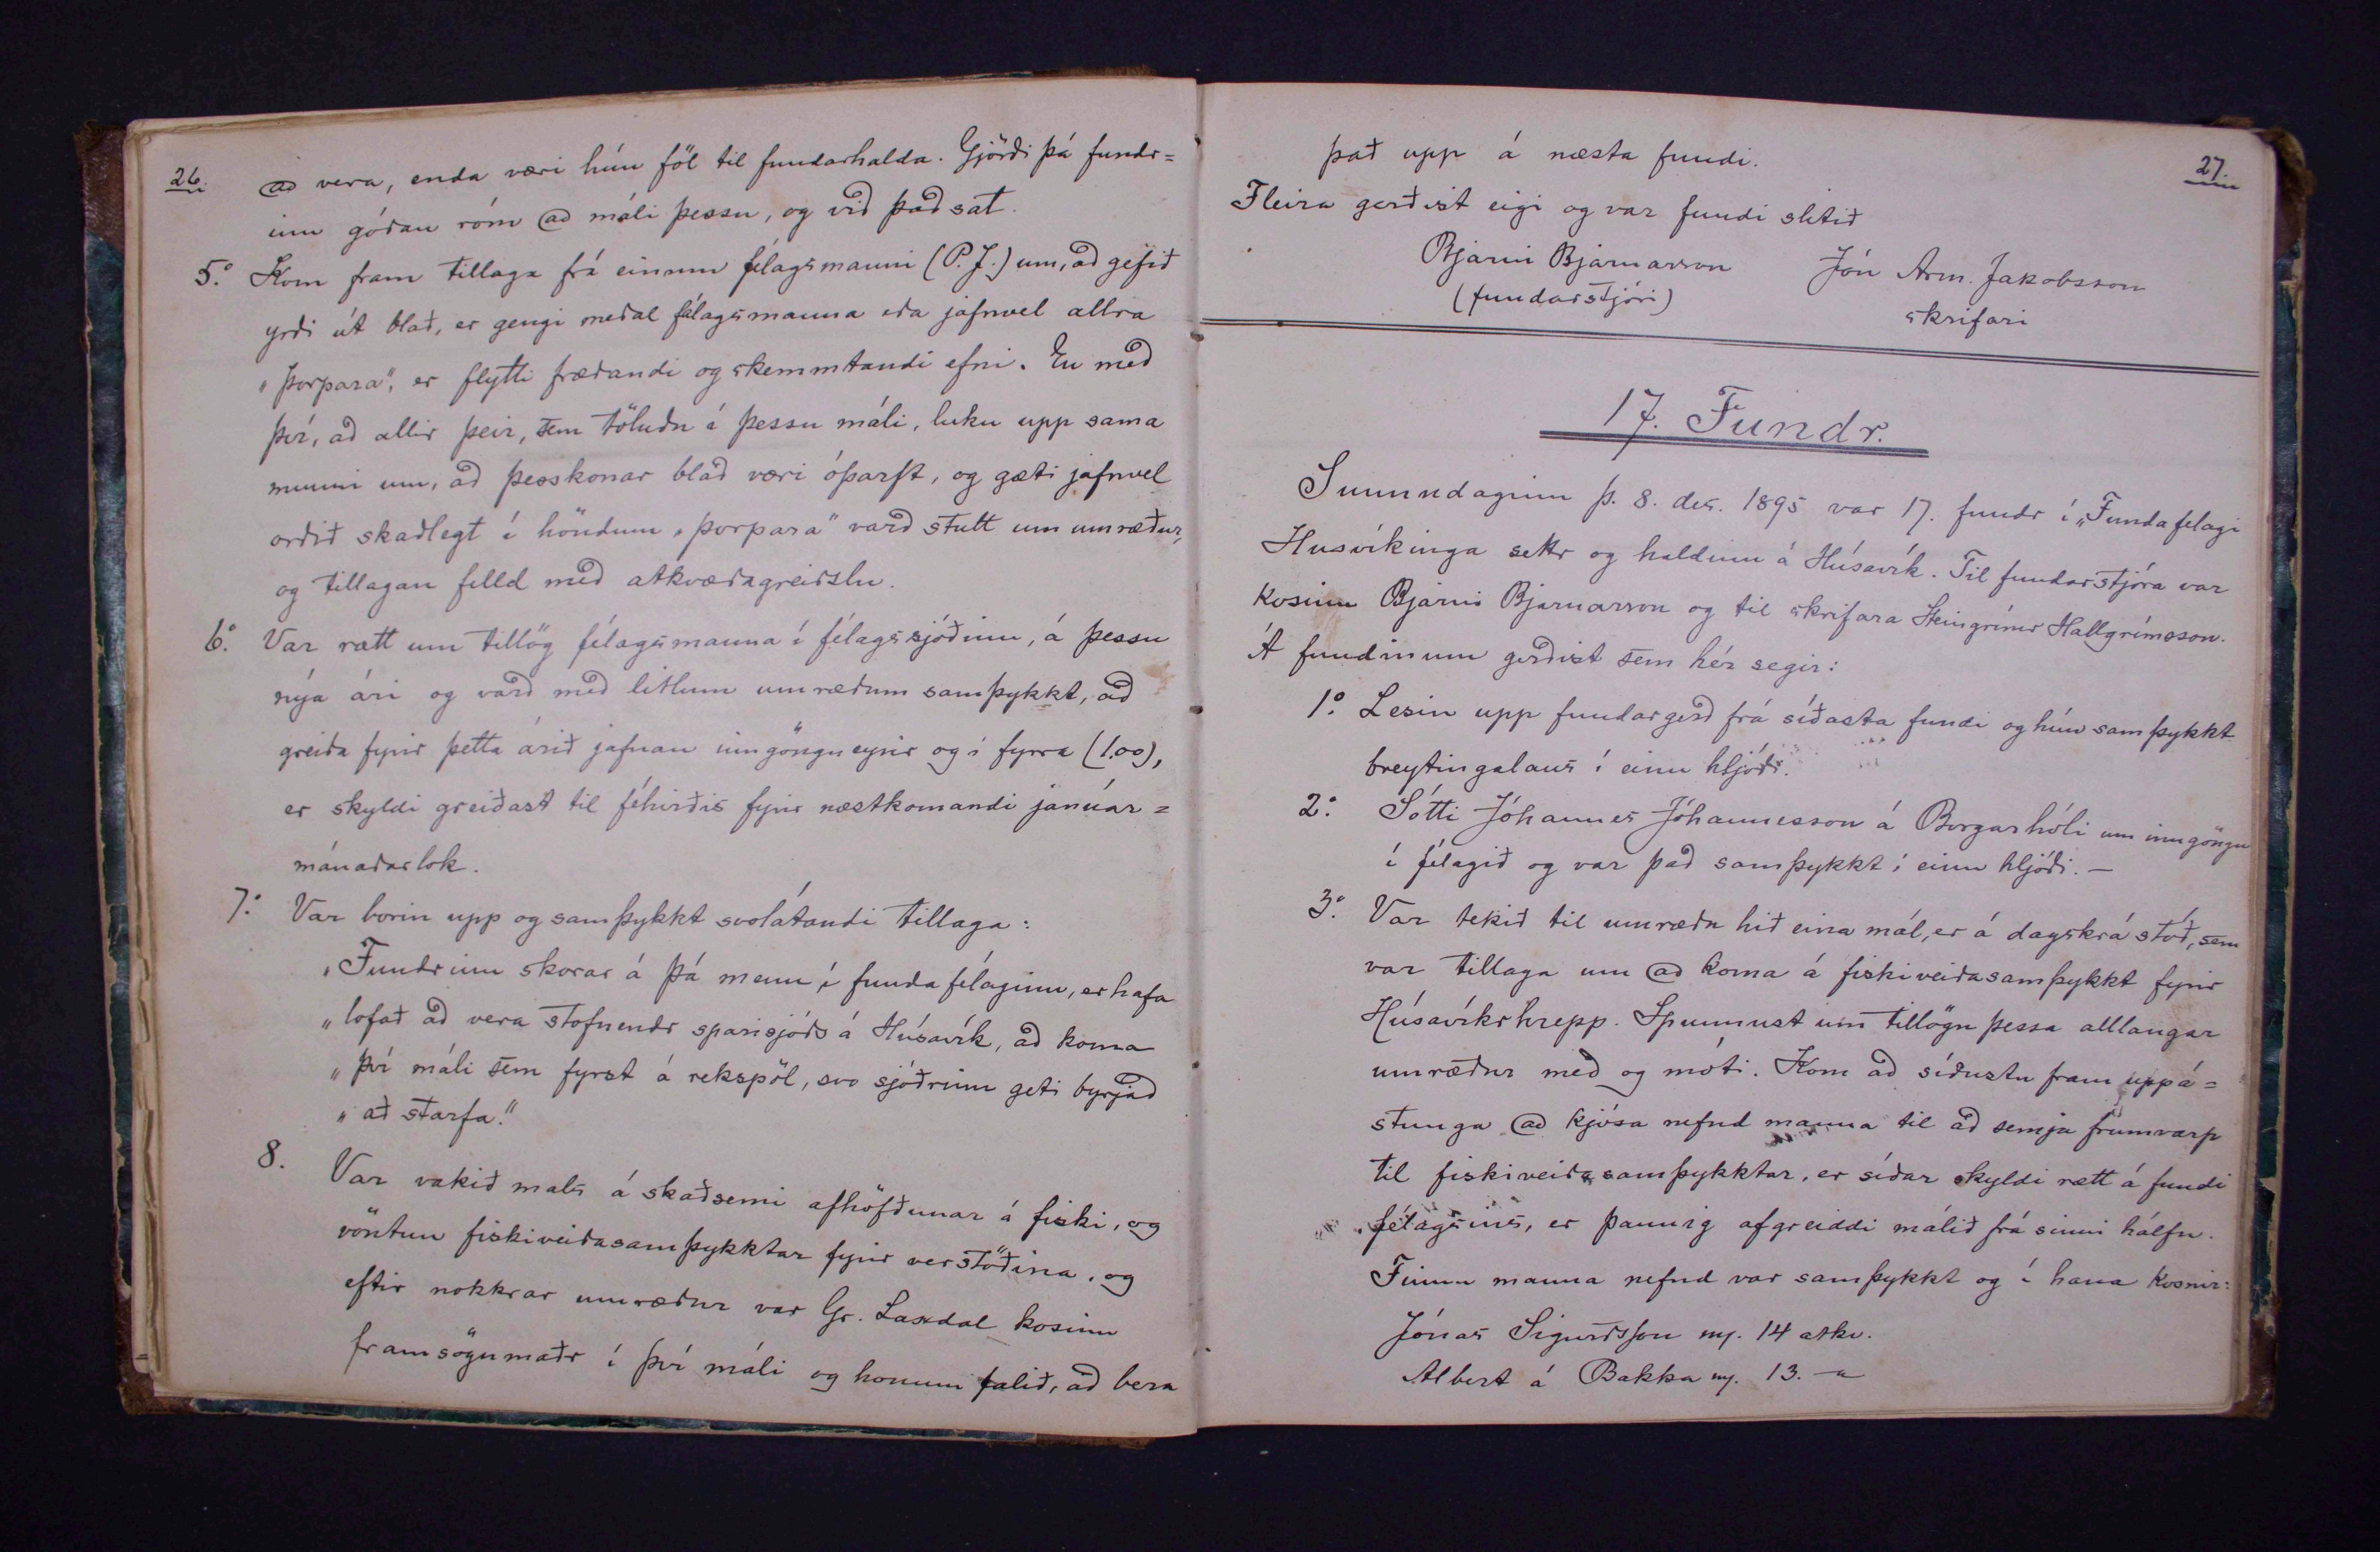 26.
að vera, enda væri hún föl til fundarhalda. Gjörði þá fundr=
inn góðan róm að máli þessu, og við það sat.
5.° Kom fram tillaga frá einum félagsmanni (P. J.) um, að gefið
yrði út blað, er gengi meðal félagsmanna eða jafnvel allra
„þorpara“, er flytti fræðandi og skemmtandi efni. En með
því, að allir þeir, sem töluðu í þessu máli, luku upp sama
munni um, að þesskonar blað væri óþarft, og gæti jafnvel
orðið skaðlegt í höndum „þorpara“ varð stutt um umræður,
og tillagan felld með atkvæðagreiðslu.
6.° Var rætt um tillög félagsmanna í félagssjóðinn, á þessu
nýa ári og varð með litlum umræðum samþykkt, að
greiða fyrir þetta árið jafnan inngöngueyrir og í fyrra (1.00),
er skyldi greiðast til féhirðis fyrir næstkomandi janúar=
mánaðarlok.
7.° Var borin upp og samþykkt svolátandi tillaga:
„Fundrinn skorar á þá menn í fundafélaginu, er hafa
„lofað að vera stofnendr sparisjóðs á Húsavík, að koma
„því máli sem fyrst á rekspöl, svo sjóðrinn geti byrjað
„að starfa.“
8. Var vakið máls á skaðsemi afhöfðunar á fiski, og
vöntun fiskiveiðasamþykktar fyrir verstöðina, og
eftir nokkrar umræður var Gr. Laxdal kosinn
framsögumaðr í því máli og honum falið, að bera
27.
það upp á næsta fundi.
Fleira gerðist eigi og var fundi slitið
Bjarni Bjarnarson Jón Arm. Jakobsson
(fundarstjóri) skrifari
17. Fundr.
Sunnudaginn þ. 8. des. 1895 var 17. fundr í „Fundafelagi
Husvíkinga settr og haldinn á Húsavík. Til fundarstjóra var
kosinn Bjarni Bjarnarson og til skrifara Steingrímr Hallgrímsson.
Á fundinum gerðist sem hér segir:
1.° Lesin upp fundargerð frá síðasta fundi og hún samþykkt
breytingalaus í einu hljóði.
2.° Sótti Jóhannes Jóhannesson á Borgarhóli um inngöngu
í félagið og var það samþykkt í einu hljóði. —
3.° Var tekið til umræðu hið eina mál, er á dagskrá stóð, sem
var tillaga um að koma á fiskiveiðasamþykkt fyrir
Húsavíkrhrepp. Spunnust um tillögu þessa alllangar
umræður með og móti. Kom að síðustu fram uppá=
stunga að kjósa nefnd manna til að semja frumvarp
til fiskiveiðasamþykktar, er síðar skyldi rætt á fundi
félagsins, er þannig afgreiddi málið frá sinni hálfu.
Fimm manna nefnd var samþykkt og í hana kosnir:
Jónas Sigurðsson m. 14 atkv.
Albert á Bakka m. 13. — „